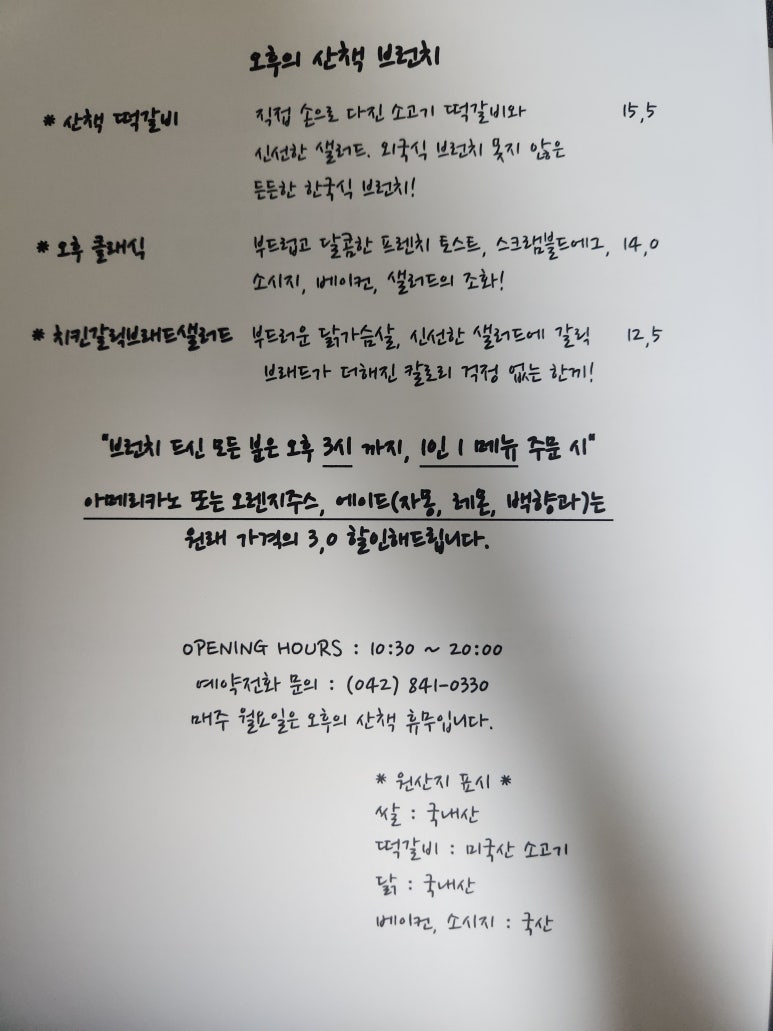 오후의 산책 브런치
* 산책 떡갈비 직접 손으로 다진 소고기 떡갈비와 15,5
신선한 샐러드. 외국식 브런치 못지 않은
든든한 한국식 브런치!
* 오후 클래식 부드럽고 달콤한 프렌치 토스트, 스크램블드에그, 14,0
소시지, 베이컨, 샐러드의 조화!
* 치킨갈릭브래드샐러드 부드러운 닭가슴살, 신선한 샐러드에 갈릭 12,5
브래드가 더해진 칼로리 걱정 없는 한끼!
"브런치 드신 모든 분은 오후 3시 까지, 1인 1 메뉴 주문 시"
아메리카노 또는 오렌지주스, 에이드(자몽, 레몬, 백향과)는
원래 가격의 3,0 할인해드립니다.
OPENING HOURS : 10:30 ~ 20:00
예약전화 문의 : (042) 841-0330
매주 월요일은 오후의 산책 휴무입니다.
* 원산지 표시 *
쌀 : 국내산
떡갈비 : 미국산 소고기
닭 : 국내산
베이컨, 소시지 : 국산